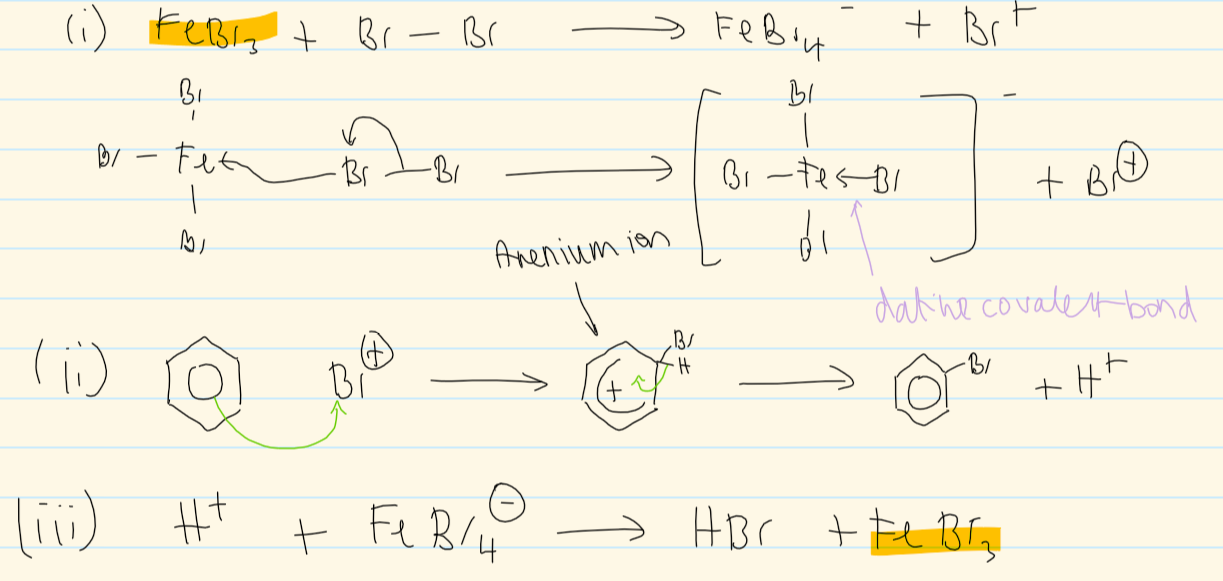 (i) FeBr₃ + Br — Br ⟶ FeBr₄⁻ + Br⁺
Br Br
Br — Fe Br — Br ⟶ [ Br — Fe ← Br ]⁻ + Br⊕
Br Br
Arenium ion
dative covalent bond
(ii) Br⊕ ⟶ + Br H ⟶ Br + H⁺
(iii) H⁺ + FeBr₄⊖ ⟶ HBr + FeBr₃